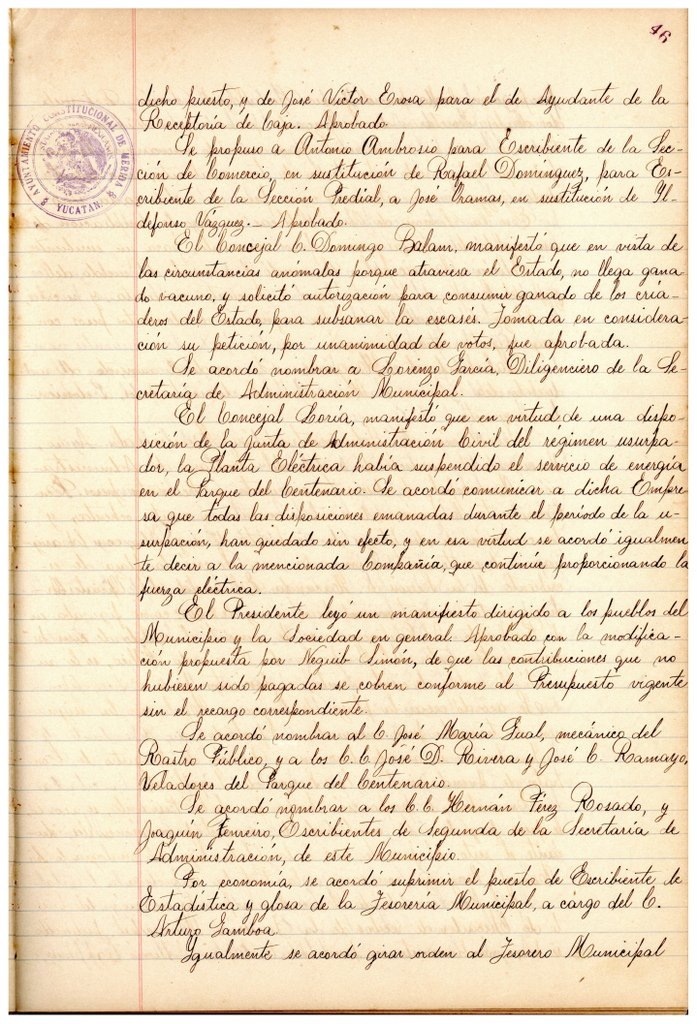 46
AYUNTAMIENTO CONSTITUCIONAL DE MERIDA
YUCATAN
dicho puesto, y de José Victor Erosa para el de Ayudante de la
Receptoría de Caja. Aprobado.
Se propuso a Antonio Ambrosio para Escribiente de la Sec-
ción de Comercio, en sustitución de Rafael Domínguez, para Es-
cribiente de la Sección Predial, a José Oramas, en sustitución de Il-
defonso Vázquez.- Aprobado.
El Concejal C. Domingo Balam, manifestó que en vista de
las circunstancias anómalas porque atraviesa el Estado, no llega gana
do vacuno, y solicitó autorización para consumir ganado de los cria-
deros del Estado, para subsanar la escasés. Tomada en considera-
ción su petición, por unanimidad de votos, fue aprobada.
Se acordó nombrar a Lorenzo García, Diligenciero de la Se-
cretaría de Administración Municipal.
El Concejal Loría, manifestó que en virtud de una dispo-
sición de la Junta de Administración Civil del régimen usurpa-
dor, la Planta Eléctrica había suspendido el servicio de energía
en el Parque del Centenario. Se acordó comunicar a dicha Empre
sa que todas las disposiciones emanadas durante el período de la u-
surpación, han quedado sin efecto, y en esa virtud se acordó igualmen
te decir a la mencionada Compañía, que continúe proporcionando la
fuerza eléctrica.
El Presidente leyó un manifiesto dirigido a los pueblos del
Municipio y la Sociedad en general. Aprobado con la modifica-
ción propuesta por Neguib Simón, de que las contribuciones que no
hubiesen sido pagadas se cobren conforme al Presupuesto vigente
sin el recargo correspondiente.
Se acordó nombrar al C. José María Gual, mecánico del
Rastro Público, y a los C.C. José D. Rivera y José C. Ramayo,
Veladores del Parque del Centenario.
Se acordó nombrar a los C.C. Hernán Pérez Rosado, y
Joaquín Ferreiro, Escribientes de Segunda de la Secretaría de
Administración, de este Municipio.
Por economía, se acordó suprimir el puesto de Escribiente de
Estadística y glosa de la Tesorería Municipal, a cargo del C.
Arturo Gamboa.
Igualmente se acordó girar orden al Tesorero Municipal